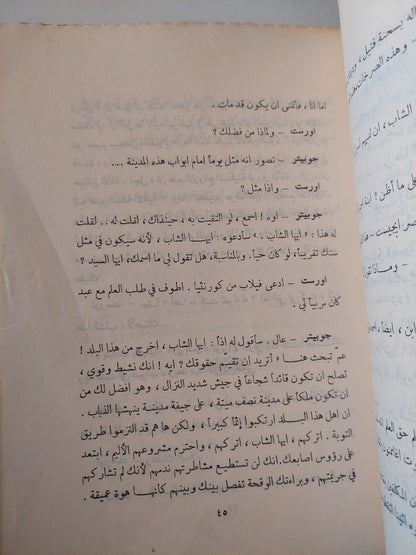 اما انا، فأتمنى ان يكون قد مات.
اورست – ولماذا من فضلك؟
جوبيتر – تصور انه مثل يوماً امام ابواب هذه المدينة ...
اورست – واذا مثل؟
جوبيتر – اوه! اسمع، لو التقيت به، حينذاك، لقلت له .. لقلت
له هذا: « ايها الشاب، » سأدعوه: ايها الشاب، لأنه سيكون في مثل
سنك تقريباً، لو كان حياً. وبالمناسبة، هل تقول لي ما اسمك، ايها السيد؟
اورست – ادعى فيلاب من كورنثيا. اطوف في طلب العلم مع عبد
كان مربياً لي.
جوبيتر – عال. سأقول له اذاً: ايها الشاب، اخرج من هذا البلد!
عم تبحث هنا؟ أتريد ان تقيم حقوقك؟ ايه! انك نشيط وقوي،
تصلح ان تكون قائداً شجاعاً في جيش شديد النزال، وهو افضل لك من
ان تكون ملكاً على مدينة نصف ميتة، على جيفة مدينة ينهشها الذباب.
ان اهل هذا البلد ارتكبوا إثماً كبيراً، ولكن ها هم قد التزموا طريق
التوبة. اتركهم، ايها الشاب، اتركهم، واحترم مشروعهم الأليم، ابتعد
على رؤوس اصابعك. انك لن تستطيع مشاطرتهم ندمهم لأنك لم تشاركهم
في جريمتهم، وبراءتك الوقحة تفصل بينك وبينهم كأنها هوة عميقة.
٤٥